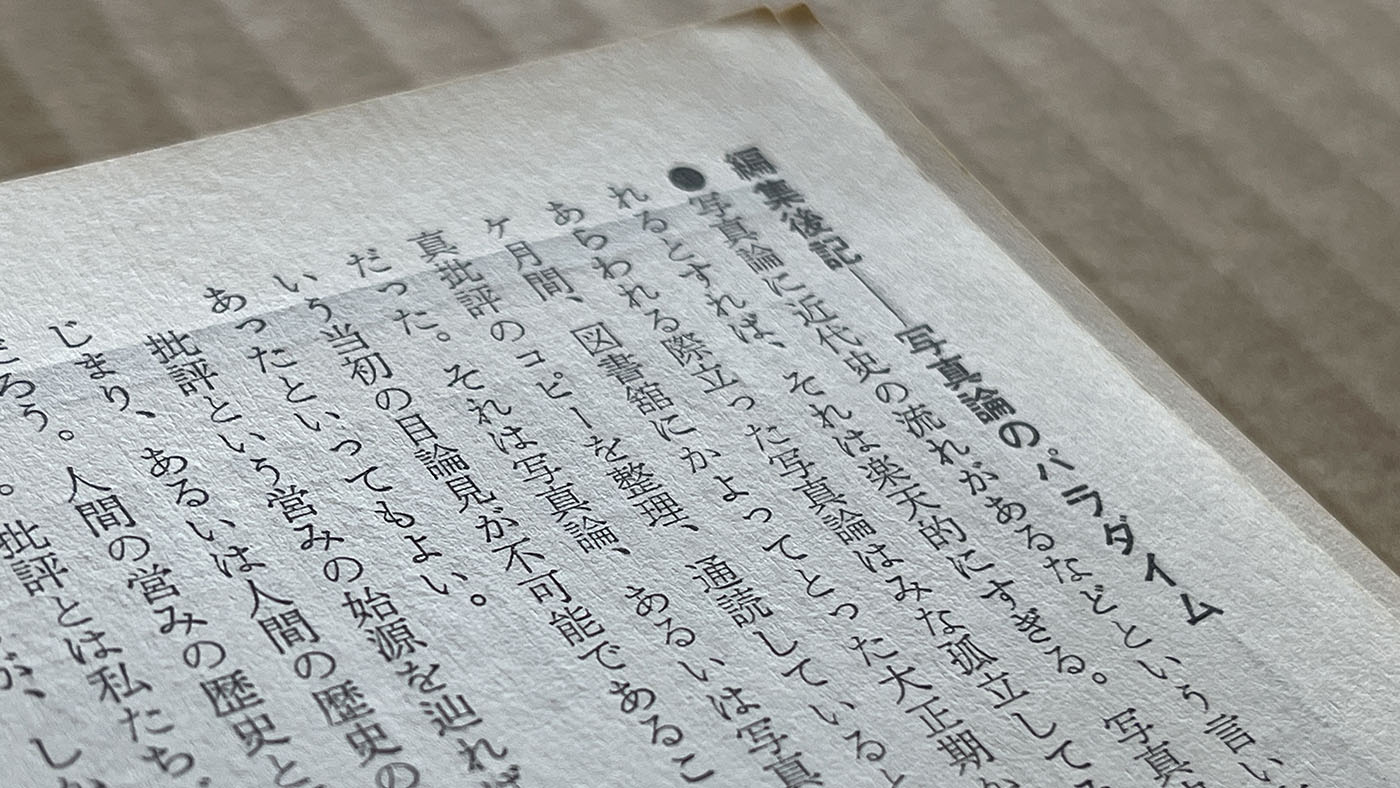 編集後記――写真論のパラダイム
●写真論に近代史の流れがあるなどという言い
れるとすれば、それは楽天的にすぎる。写真
あらわれる際立った写真論はみな孤立して
ヶ月間、図書館にかよってとった大正期か
真批評のコピーを整理、通読していると
だった。それは写真論、あるいは写真
いう当初の目論見が不可能であるこ
あったといってもよい。
批評という営みの始源を辿れば
じまり、あるいは人間の歴史の
だろう。人間の営みの歴史と
。批評とは私たち
が、しか